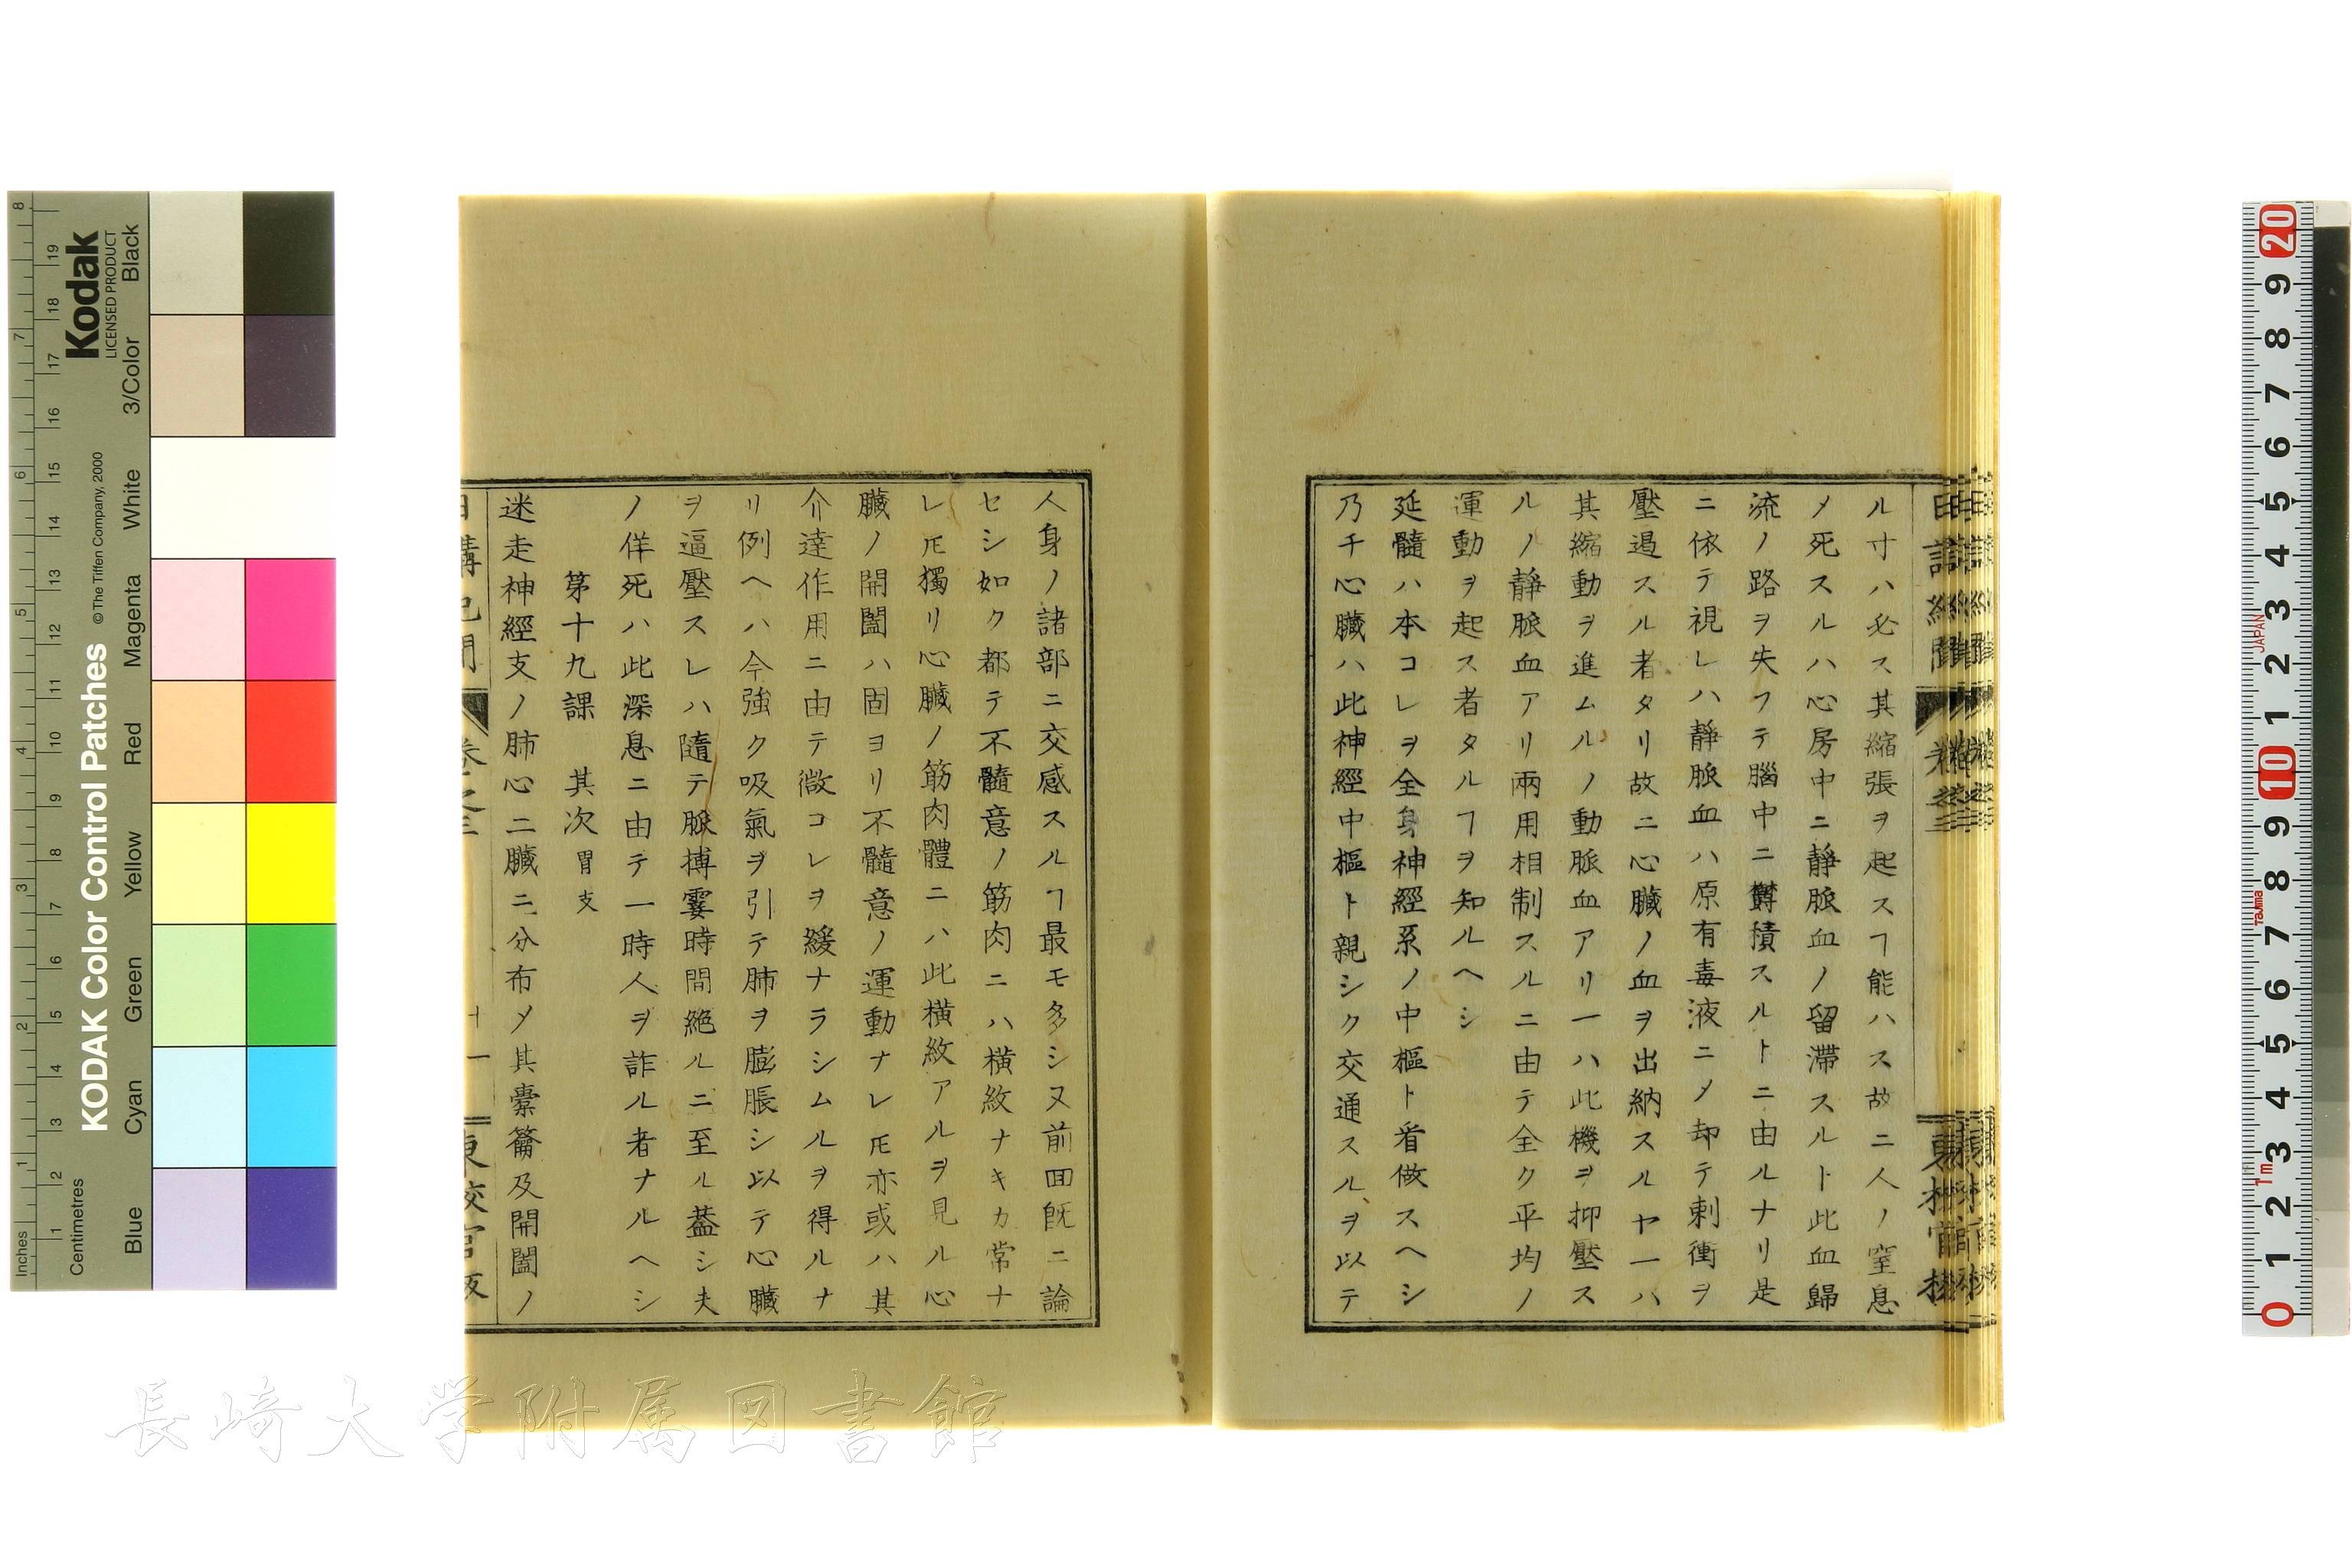 ル寸ハ必ス其縮張ヲ起スヿ能ハス故ニ人ノ窒息
メ死スルハ心房中ニ靜脈血ノ留滞スルト此血歸
流ノ路ヲ失フテ腦中ニ欝積スルトニ由ルナリ是
ニ依テ視レハ靜脈血ハ原有毒液ニメ却テ刺衝ヲ
壓遏スル者タリ故ニ心臓ノ血ヲ出納スルヤ一ハ
其縮動ヲ進ムルノ動脈血アリ一ハ此機ヲ抑壓ス
ルノ靜脈血アリ兩用相制スルニ由テ全ク平均ノ
運動ヲ起ス者タルヿヲ知ルヘシ
延髓ハ本コレヲ全身神經系ノ中樞ト看做スヘシ
乃チ心臓ハ此神經中樞ト親シク交通スルヲ以テ
人身ノ諸部ニ交感スルヿ最モ多シ又前囬既ニ論
セシ如ク都テ不髓意ノ筋肉ニハ横紋ナキカ常ナ
レ𪜈獨リ心臓ノ筋肉體ニハ此横紋アルヲ見ル心
臓ノ開闔ハ固ヨリ不髓意ノ運動ナレ𪜈亦或ハ其
介達作用ニ由テ微コレヲ緩ナラシムルヲ得ルナ
リ例ヘハ今強ク吸氣ヲ引テ肺ヲ膨脹シ以テ心臓
ヲ逼壓スレハ隨テ脈搏霎時間絶ルニ至ル蓋シ夫
ノ佯死ハ此深息ニ由テ一時人ヲ詐ル者ナルヘシ
第十九課 其次 胃支
迷走神經支ノ肺心二臓ニ分布メ其橐籥及開闔ノ
十一
KODAK Color Control Patches
© The Tiffen Company, 2000
Kodak
LICENSED PRODUCT
Inches 1 2 3 4 5 6 7 8
Centimetres 1 2 3 4 5 6 7 8 9 10 11 12 13 14 15 16 17 18 19
Blue Cyan Green Yellow Red Magenta White 3/Color Black
0 1 2 3 4 5 6 7 8 9 10 1 2 3 4 5 6 7 8 9 20
1m Tajima JAPAN
長崎大学附属図書館